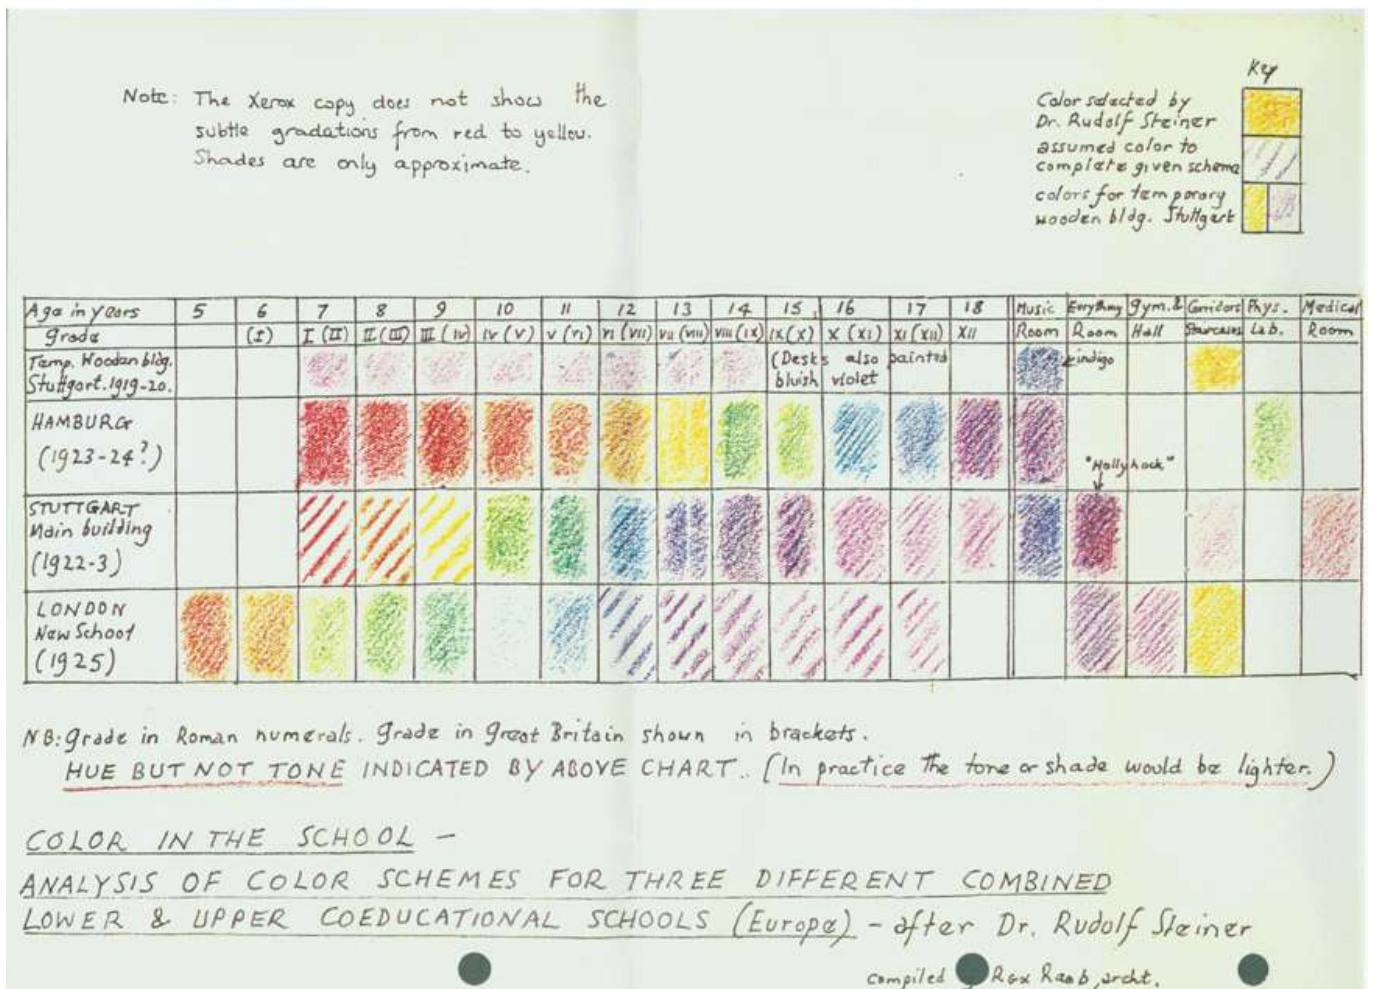 Note: The Xerox copy does not show the
subtle gradations from red to yellow.
Shades are only approximate.
Key
Color selected by
Dr. Rudolf Steiner
assumed color to
complete given schema
colors for temporary
wooden bldg. Stuttgart
Age in years 5 6 7 8 9 10 11 12 13 14 15 16 17 18 Music Everything Gym. & Corridors Phys. Medical
Grade (I) I (II) II (III) III (IV) IV (V) V (VI) VI (VII) VII (VIII) VIII (IX) IX (X) X (XI) XI (XII) XII Room Room Hall Staircases Lab. Room
Temp. Wooden bldg. (Desks also painted indigo
Stuttgart. 1919-20. bluish violet
HAMBURG
(1923-24?)
"Hollyhock"
STUTTGART
Main building
(1922-3)
LONDON
New School
(1925)
NB: Grade in Roman numerals. Grade in Great Britain shown in brackets.
HUE BUT NOT TONE INDICATED BY ABOVE CHART. (In practice the tone or shade would be lighter.)
COLOR IN THE SCHOOL –
ANALYSIS OF COLOR SCHEMES FOR THREE DIFFERENT COMBINED
LOWER & UPPER COEDUCATIONAL SCHOOLS (Europe) – after Dr. Rudolf Steiner
compiled Rex Raab, archt.